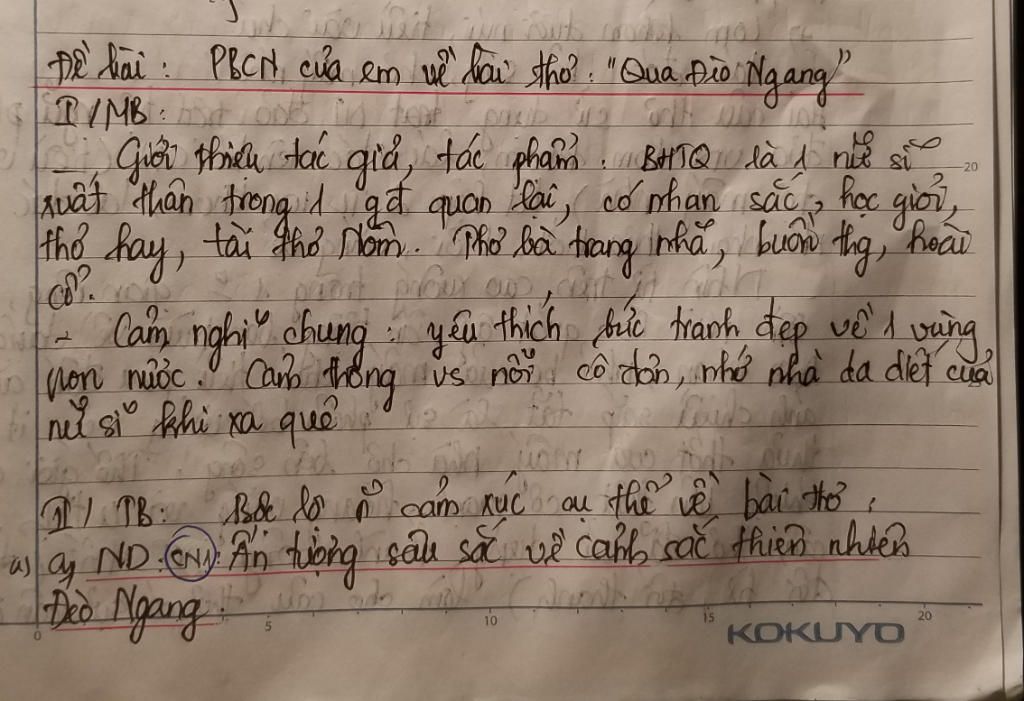 Đề bài: PBCN của em về bài thơ: "Qua Đèo Ngang"
I/MB:
- Giới thiệu tác giả, tác phẩm: BHTQ là 1 nữ sĩ
xuất thân trong 1 gđ quan lại, có nhan sắc, học giỏi,
thơ hay, tài thơ Nôm. Thơ bà trang nhã, buồn thg, hoài
cổ.
- Cảm nghĩ chung: yêu thích bức tranh đẹp về 1 vùng
non nước. Cảm thông vs nỗi cô đơn, nhớ nhà da diết của
nữ sĩ khi xa quê
II/ TB: Bộc lộ n~ cảm xúc cụ thể về bài thơ:
a) a) ND: CN1: Ấn tượng sâu sắc về cảnh sắc thiên nhiên
Đèo Ngang.
0 5 10 15 20
KOKUYO
20